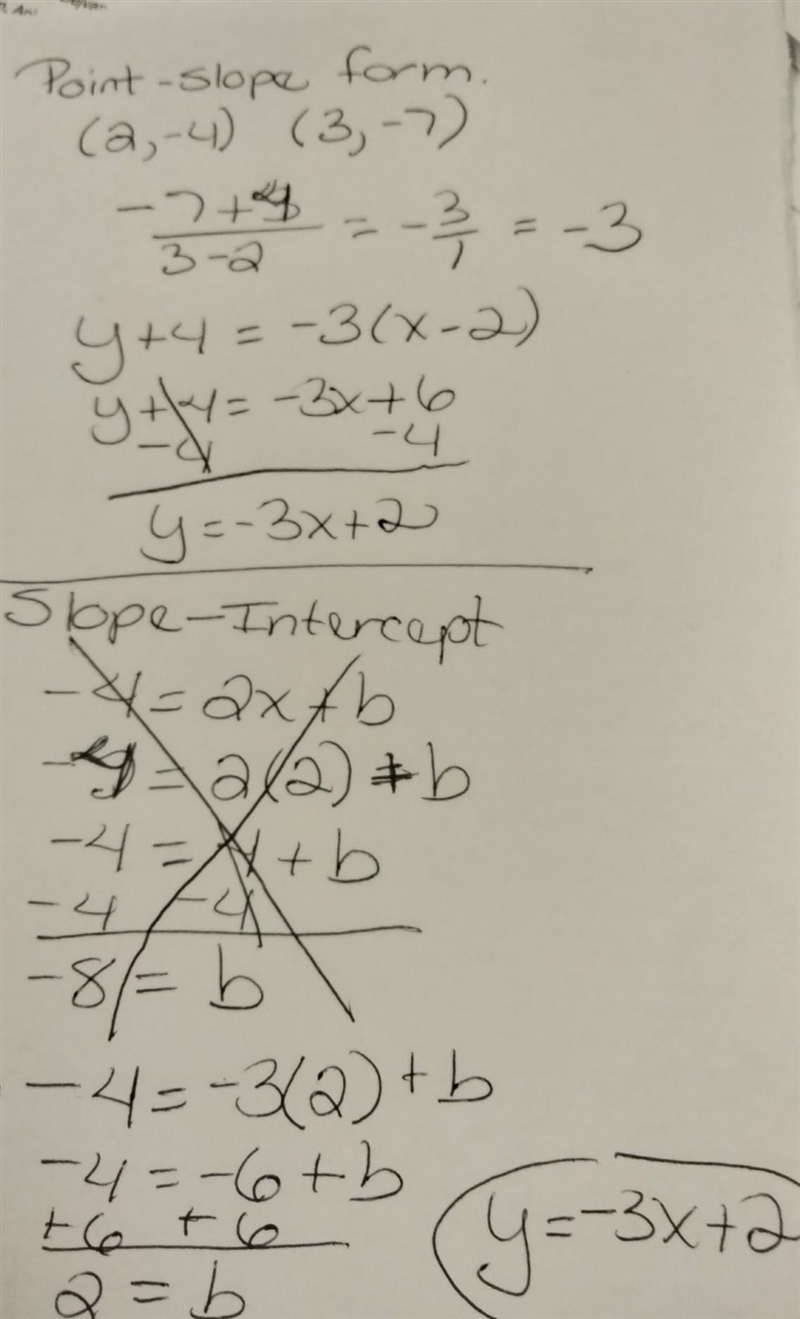 Point-slope form.
(2,-4) (3,-7)
-7+4/3-2 = -3/1 = -3
y+4 = -3(x-2)
y+4 = -3x+6
-4 -4
y=-3x+2
Slope-Intercept
-4 = 2x+b
-4 = 2(2)+b
-4 = 4+b
-4 -4
-8 = b
-4 = -3(2)+b
-4 = -6+b
+6 +6
2 = b
y=-3x+2